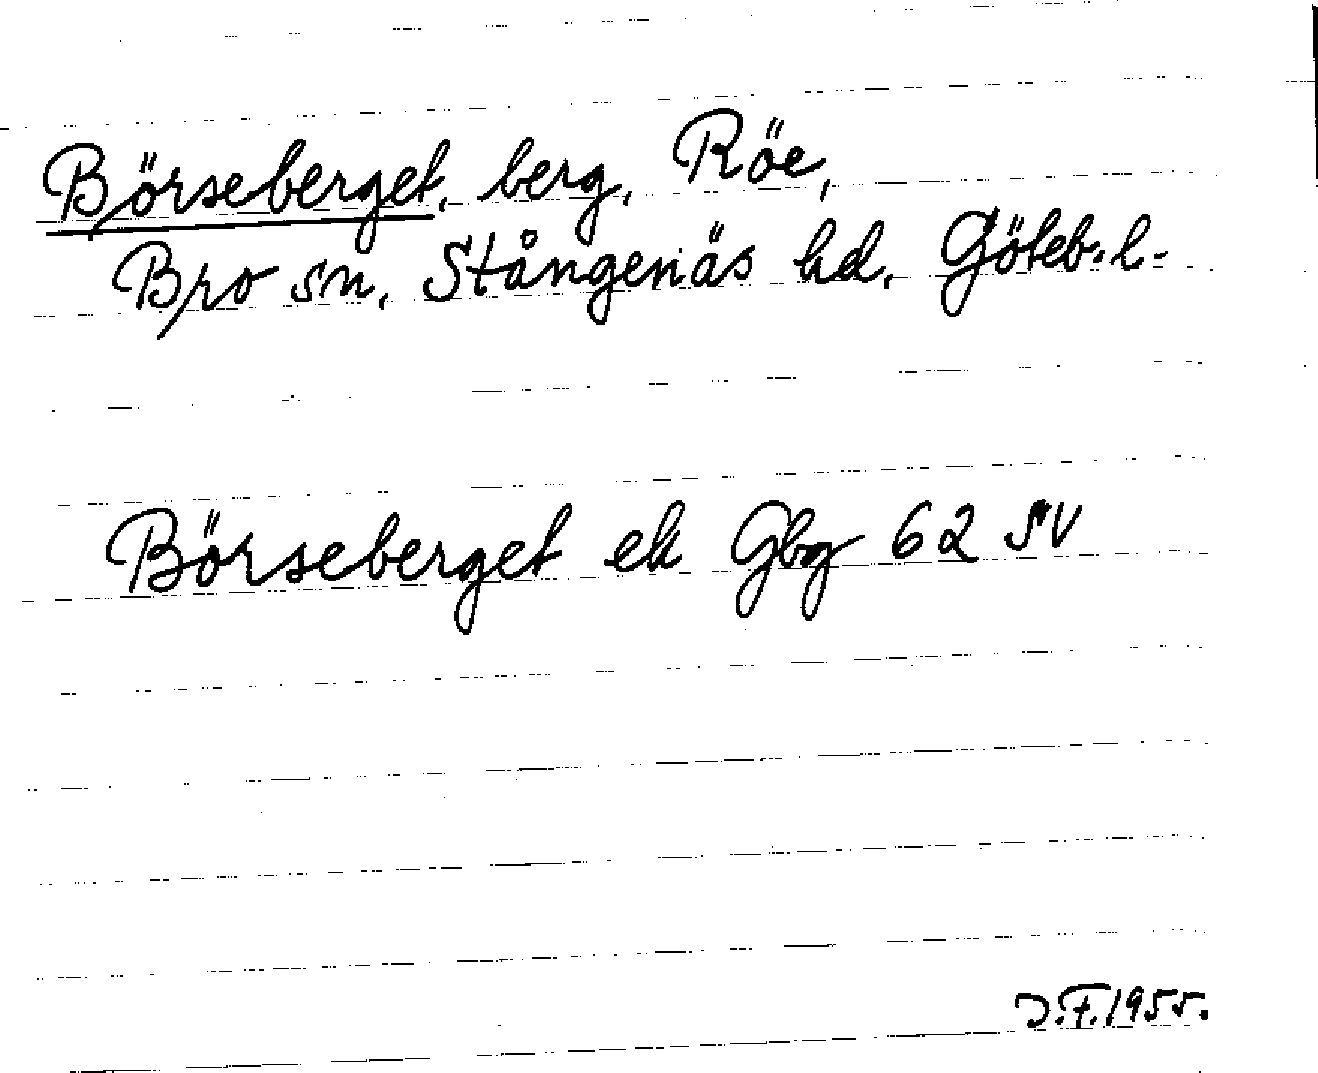 Börseberget, berg, Röe,
Bro sn, Stångenäs hd, Göteb. l.
Börseberget ek Gbg 62 SV
J.F. 1955.